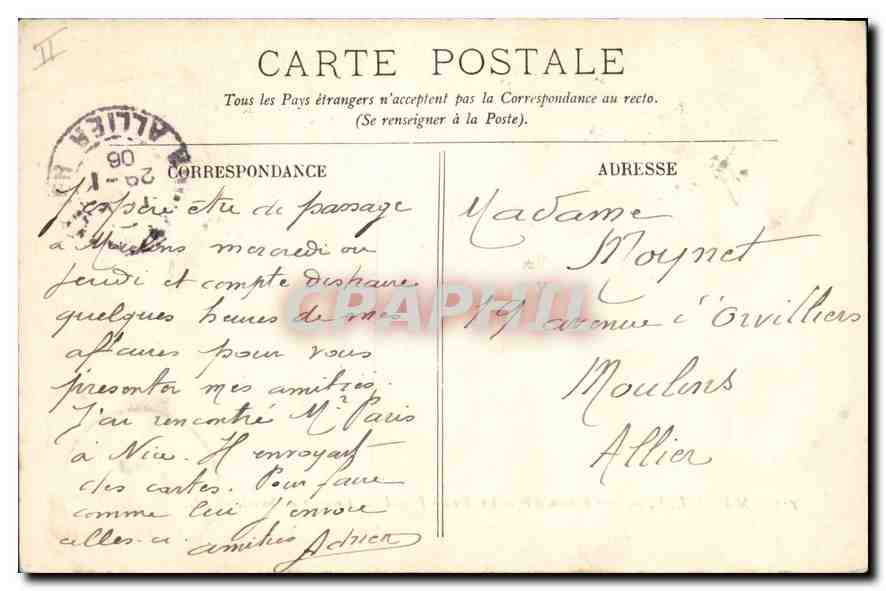 II
CARTE POSTALE
Tous les Pays étrangers n'acceptent pas la Correspondance au recto.
(Se renseigner à la Poste).
ALLIER
29 - 1
06
CORRESPONDANCE
J'espère être de passage
à Moulins mercredi ou
jeudi et compte distraire
quelques heures de mes
affaires pour vous
présenter mes amitiés.
J'ai rencontré Mr Paris
à Nice. Il envoyait
des cartes. Pour faire
comme lui j'envoie
celles-ci amitiés Adrien
ADRESSE
Madame
Moynet
19 avenue d'Orvilliers
Moulins
Allier
CPAPHIL